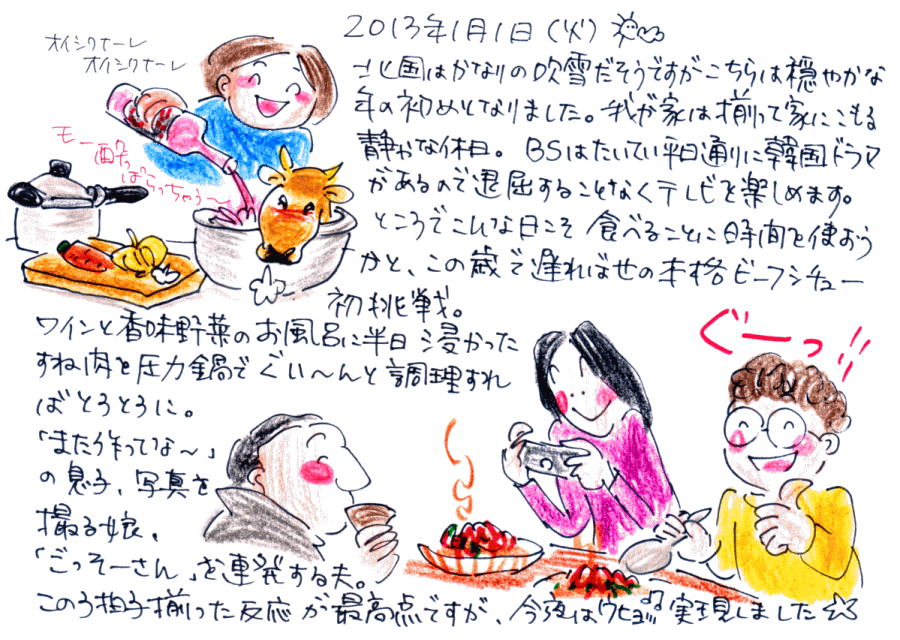 2013年1月1日(火)
オイシクナーレ
オイシクナーレ
北国はかなりの吹雪だそうですがこちらは穏やかな
年の初めとなりました。我が家は揃って家にこもる
静かな休日。BSはたいてい平日通りに韓国ドラマ
があるので退屈することなくテレビを楽しめます。
ところでこんな日こそ食べることに時間を使おう
かと、この歳で遅ればせの本格ビーフシチュー
初挑戦。
モー酔っ
ぱらっちゃう〜
ワインと香味野菜のお風呂に半日浸かった
すね肉を圧力鍋でぐい〜んと調理すれ
ばとろとろに。
ぐーっ!!
「また作ってな〜」
の息子、写真を
撮る娘、
「ごっそーさん」を連発する夫。
この3拍子揃った反応が最高点ですが、今夜は実現しました☆